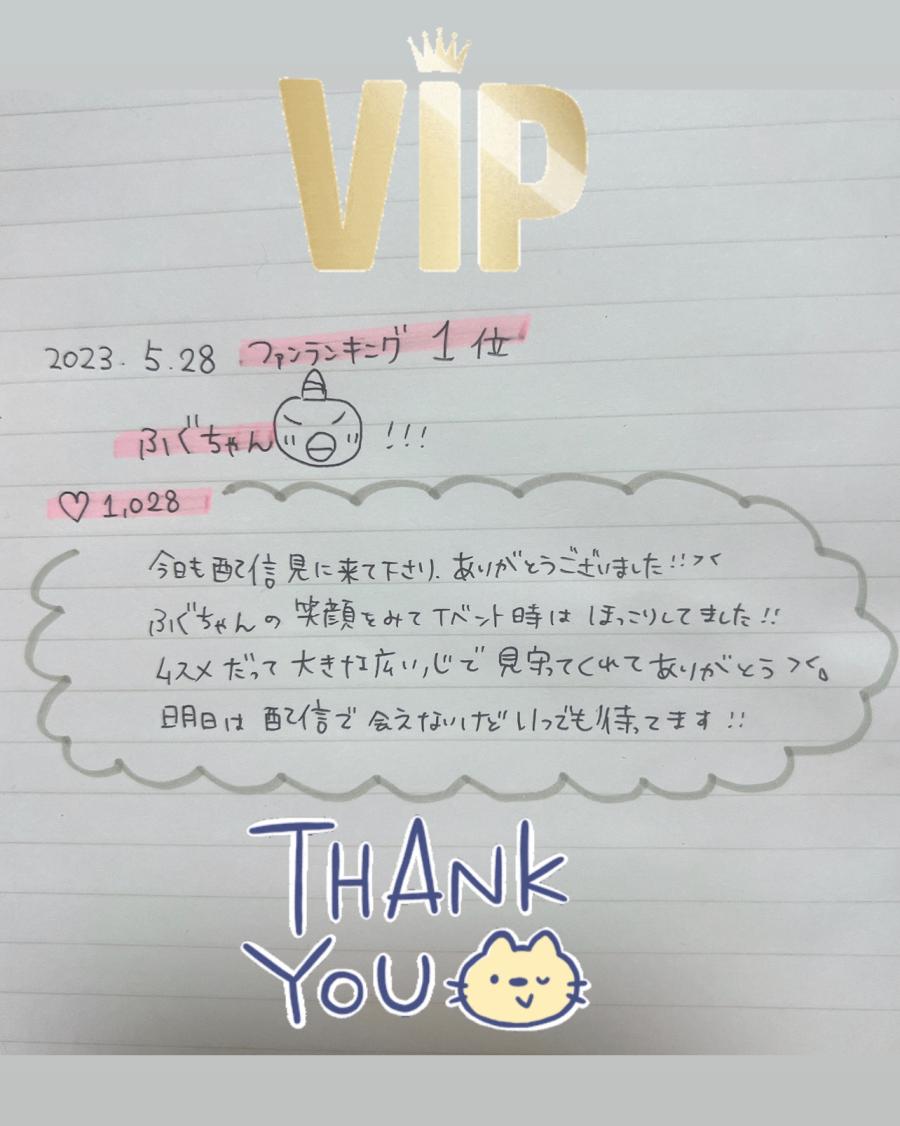 VIP
2023. 5.28 ファンランキング 1位
ふぐちゃん !!!
♡ 1,028
今日も配信見に来て下さり、ありがとうございました!!
ふぐちゃんの笑顔をみてイベント時は ほっこりしてました!!
ムスメだって 大きな広い心で 見守ってくれてありがとう
明日は 配信で 会えないけど いつでも待ってます !!
THANK
YOU